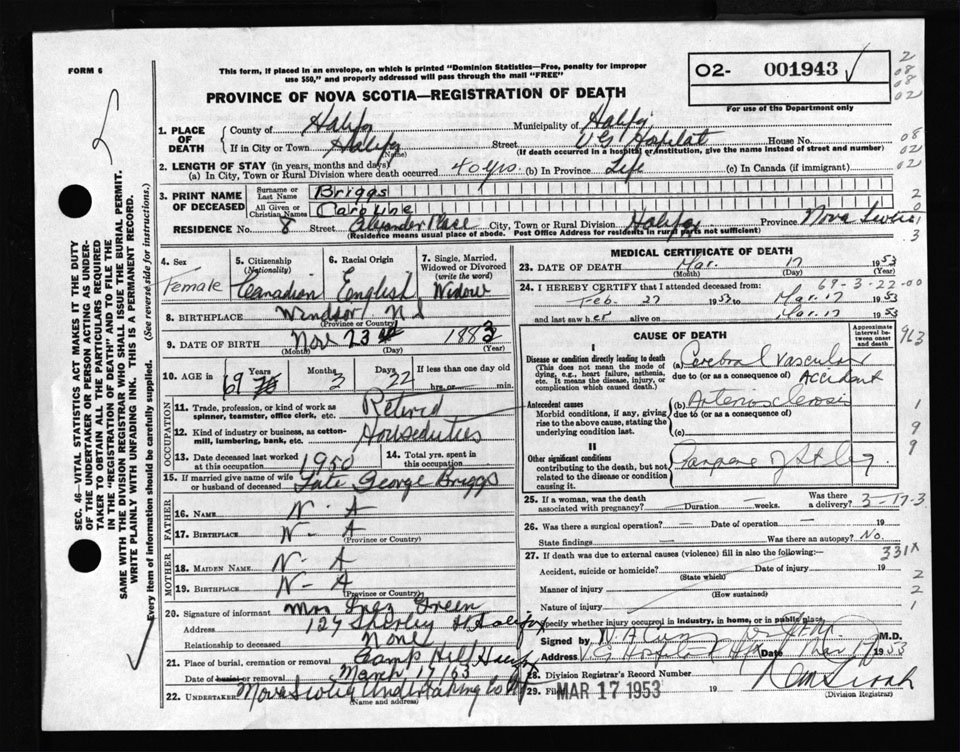 FORM 6
This form, if placed in an envelope, on which is printed "Dominion Statistics—Free, penalty for improper
use $50," and properly addressed will pass through the mail "FREE"
O2- 001943 ✓
For use of the Department only
2
08
08
02
PROVINCE OF NOVA SCOTIA—REGISTRATION OF DEATH
1. PLACE OF DEATH
County of Halifx Municipality of Halifx
If in City or Town Halifx (Name) Street V.G. Hospital House No.
(If death occurred in a hospital or institution, give the name instead of street and number)
08
02
02
2. LENGTH OF STAY (in years, months and days)
(a) In City, Town or Rural Division where death occurred 40 yrs. (b) In Province Life (c) In Canada (if immigrant)
3. PRINT NAME OF DECEASED
Surname or Last Name Briggs
All Given or Christian Names Caroline
RESIDENCE No. 8 Street Alexander Place City, Town or Rural Division Halifax Province Nova Scotia
(Residence means usual place of abode. Post Office Address for residents in rural parts not sufficient)
4. Sex Female
5. Citizenship (Nationality) Canadian
6. Racial Origin English
7. Single, Married, Widowed or Divorced (write the word) Widow
8. BIRTHPLACE Windsor N.S
(Province or Country)
9. DATE OF BIRTH Nov 23 1883
(Month) (Day) (Year)
10. AGE in 69 Years 3 Months 22 Days If less than one day hrs. or min.
OCCUPATION
11. Trade, profession, or kind of work as spinner, teamster, office clerk, etc. Retired
12. Kind of industry or business, as cotton-mill, lumbering, bank, etc. Houseduties
13. Date deceased last worked at this occupation 1950
14. Total yrs. spent in this occupation
15. If married give name of wife or husband of deceased Late George Briggs
FATHER
16. NAME N - A
17. BIRTHPLACE N - A
(Province or Country)
MOTHER
18. MAIDEN NAME N - A
19. BIRTHPLACE N - A
(Province or Country)
20. Signature of informant Mrs Inez Green
Address 127 Shirley St Halifax
Relationship to deceased None
21. Place of burial, cremation or removal Camp Hill Halifax
Date of burial or removal March 19/53
22. UNDERTAKER Nova Scotia Undertaking Co
(Name and address)
MEDICAL CERTIFICATE OF DEATH
23. DATE OF DEATH Mar. 17 1953
(Month) (Day) (Year)
69-3-22-00
24. I HEREBY CERTIFY that I attended deceased from:
Feb. 27 1953 to Mar. 17 1953
and last saw her alive on Mar. 17 1953
CAUSE OF DEATH
Approximate interval between onset and death
963
I
Disease or condition directly leading to death
(This does not mean the mode of dying, e.g., heart failure, asthenia, etc. It means the disease, injury, or complication which caused death.)
(a) Cerebral Vascular Accident
due to (or as a consequence of)
Antecedent causes
Morbid conditions, if any, giving rise to the above cause, stating the underlying condition last.
(b) Arteriosclerosis
due to (or as a consequence of)
(c)
1
9
9
II
Other significant conditions contributing to the death, but not related to the disease or condition causing it.
Gangrene of Lt leg
25. If a woman, was the death associated with pregnancy? — Duration — weeks. Was there a delivery?
3-17-3
26. Was there a surgical operation? — Date of operation — 19
State findings — Was there an autopsy? No.
27. If death was due to external causes (violence) fill in also the following:—
331x
Accident, suicide or homicide? (State which) Date of injury 19
Manner of injury (How sustained)
Nature of injury
2
2
1
Specify whether injury occurred in industry, in home, or in public place.
Signed by M.D.
Address V.G. Hospital Hfx Date Mar 17 1953
28. Division Registrar's Record Number
29. Filed MAR 17 1953 19
(Division Registrar)
SEC. 46—VITAL STATISTICS ACT MAKES IT THE DUTY
OF THE UNDERTAKER OR PERSON ACTING AS UNDER-
TAKER TO OBTAIN ALL THE PARTICULARS REQUIRED
IN THE "REGISTRATION OF DEATH" AND TO FILE THE
SAME WITH THE DIVISION REGISTRAR WHO SHALL ISSUE THE BURIAL PERMIT.
WRITE PLAINLY WITH UNFADING INK. THIS IS A PERMANENT RECORD.
Every item of information should be carefully supplied. (See reverse side for instructions.)